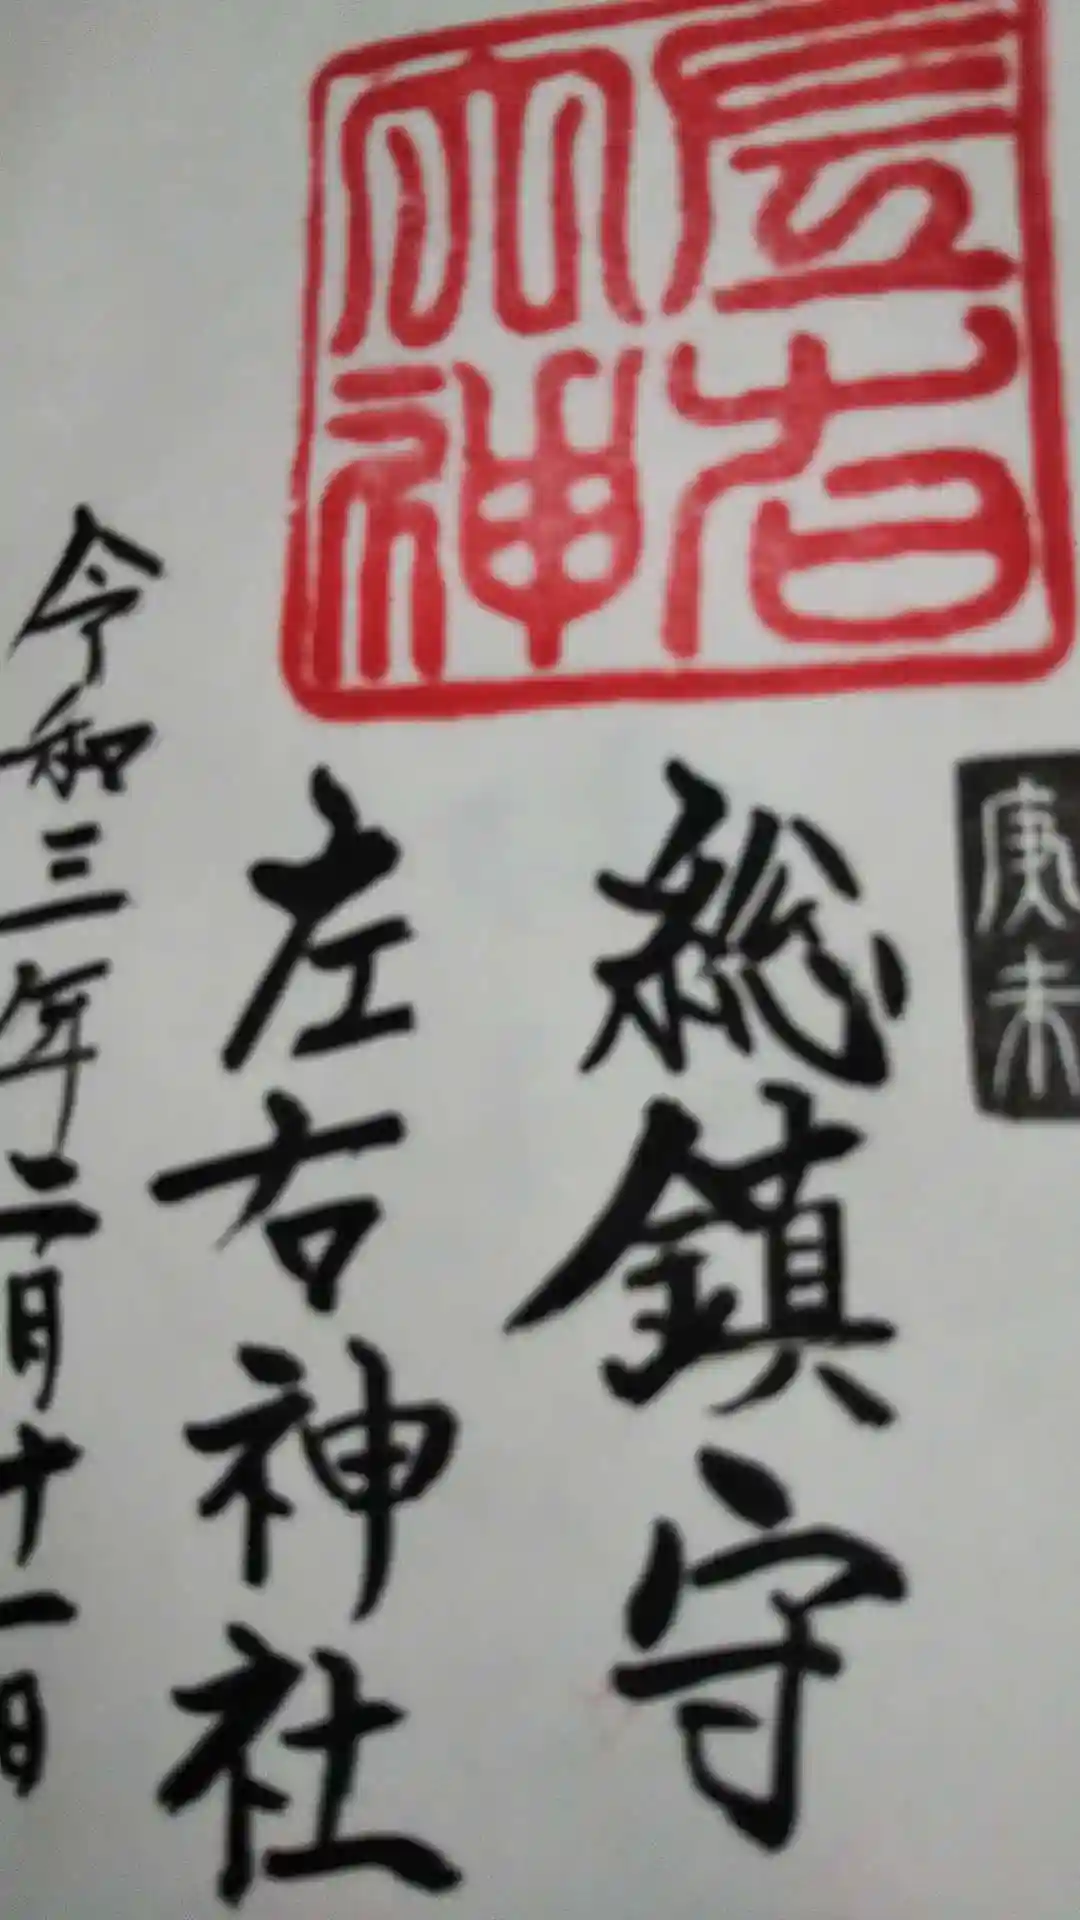 左右
大神
総鎮守
左右神社
令和三年二月十一日